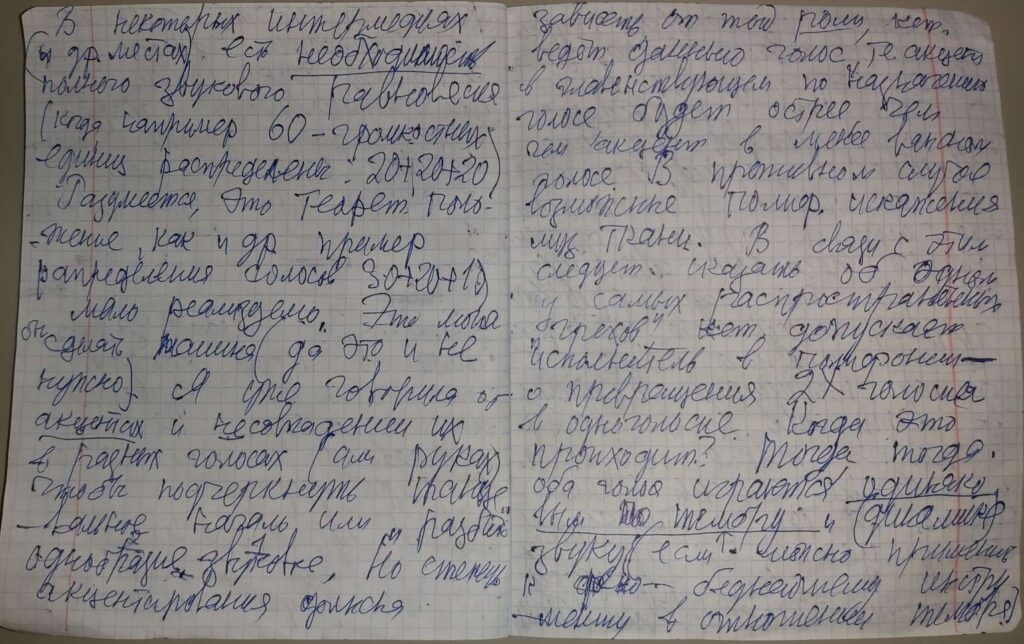 В некоторых интермедиях
(и др местах) есть необходимость
полного звукового равновесия
(когда например 60 – громкостных
единиц распределены: 20+20+20)
Разумеется, это теорет поло-
-жение, как и др пример
рапределения голосов 30+20+10)
мало реамдемо. Это може
сделать машина (да это и не
нужно). Я уже говорила об
акцентах и несовпадении их
в разных голосах (или руках)
чтобы подчеркнуть танце-
-вальное начало или "разбить"
однобразие звуковое, Но степень
акцентирования должна
зависеть от той роли, кот.
ведёт данный голос, те акцент
в главенствующем по назначению
голосе будет острее чем
чем акцент в менее важном
голосе. В противном случае
возможные полиф. искажения
муз ткани. В связи с этим
следует сказать об одном
из самых распространённых
"грехов" кот допускает
исполнитель в полифонии –
о превращения 2х голосия
в одноголосие. Когда это
происходит? Тогда тогда.
оба голоса играются одинако
вым по тембру и (динамике)
звуку (если можно применить
к ф-но – беднейшему инстру
-менту в отношении тембра)